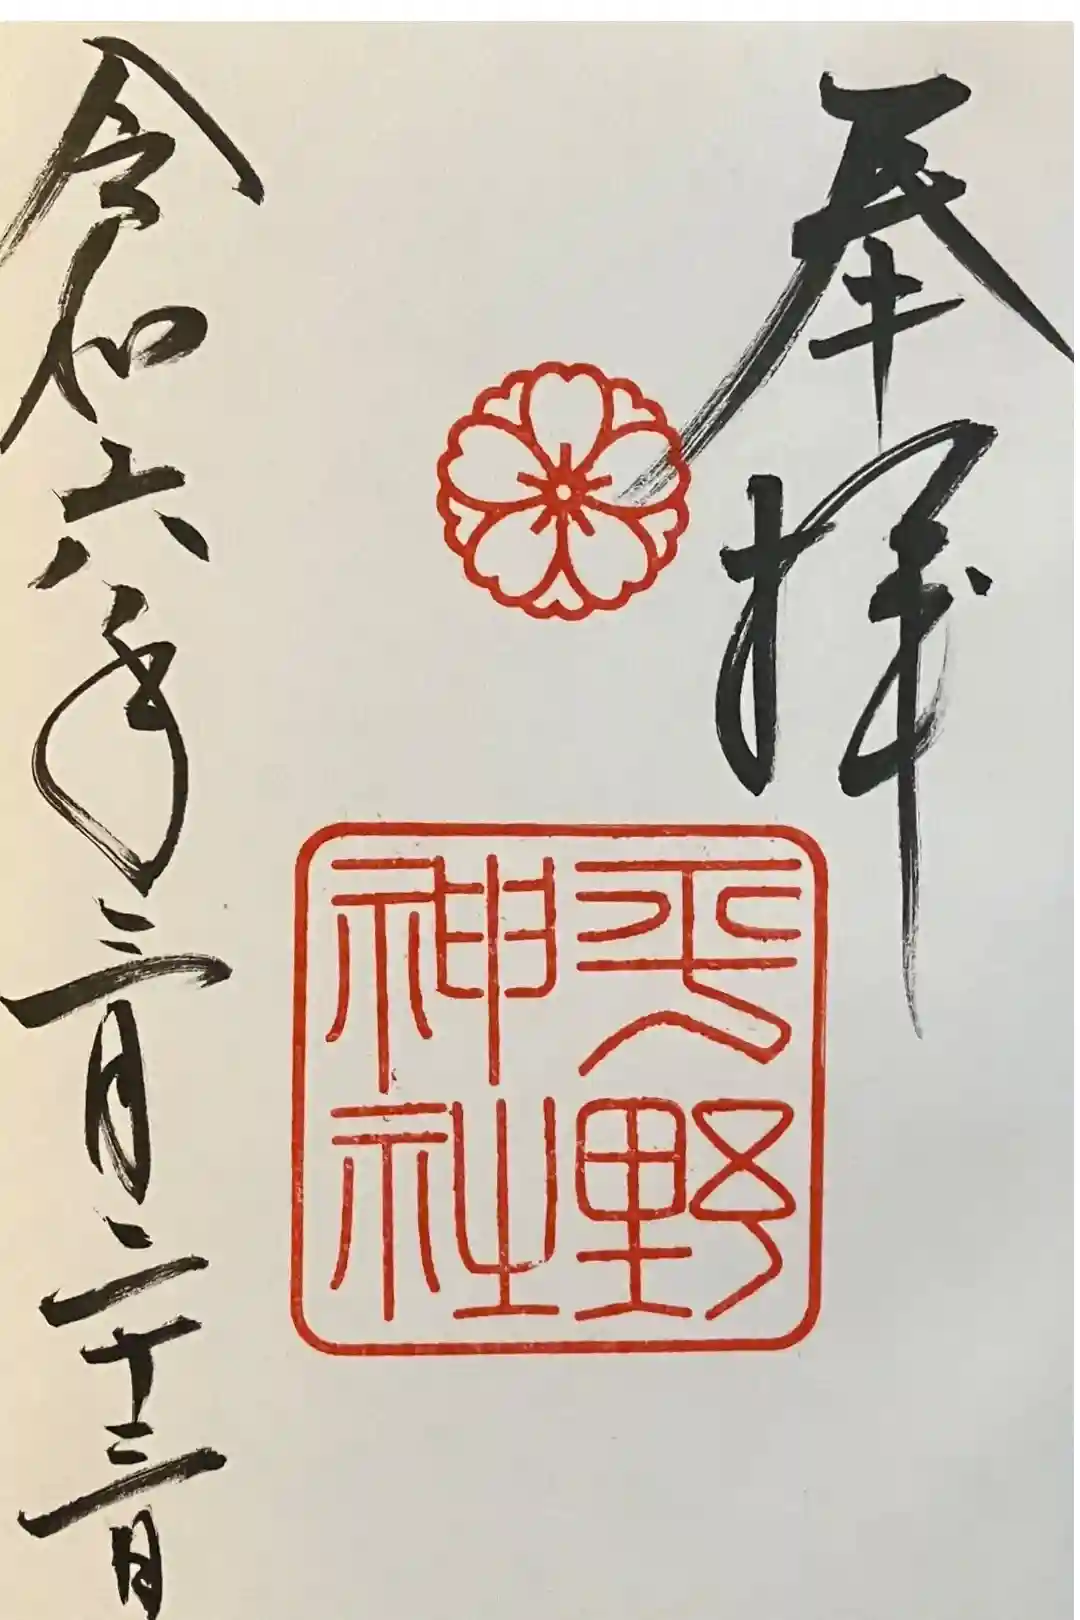 奉拝
平野
神社
令和六年三月二十三日